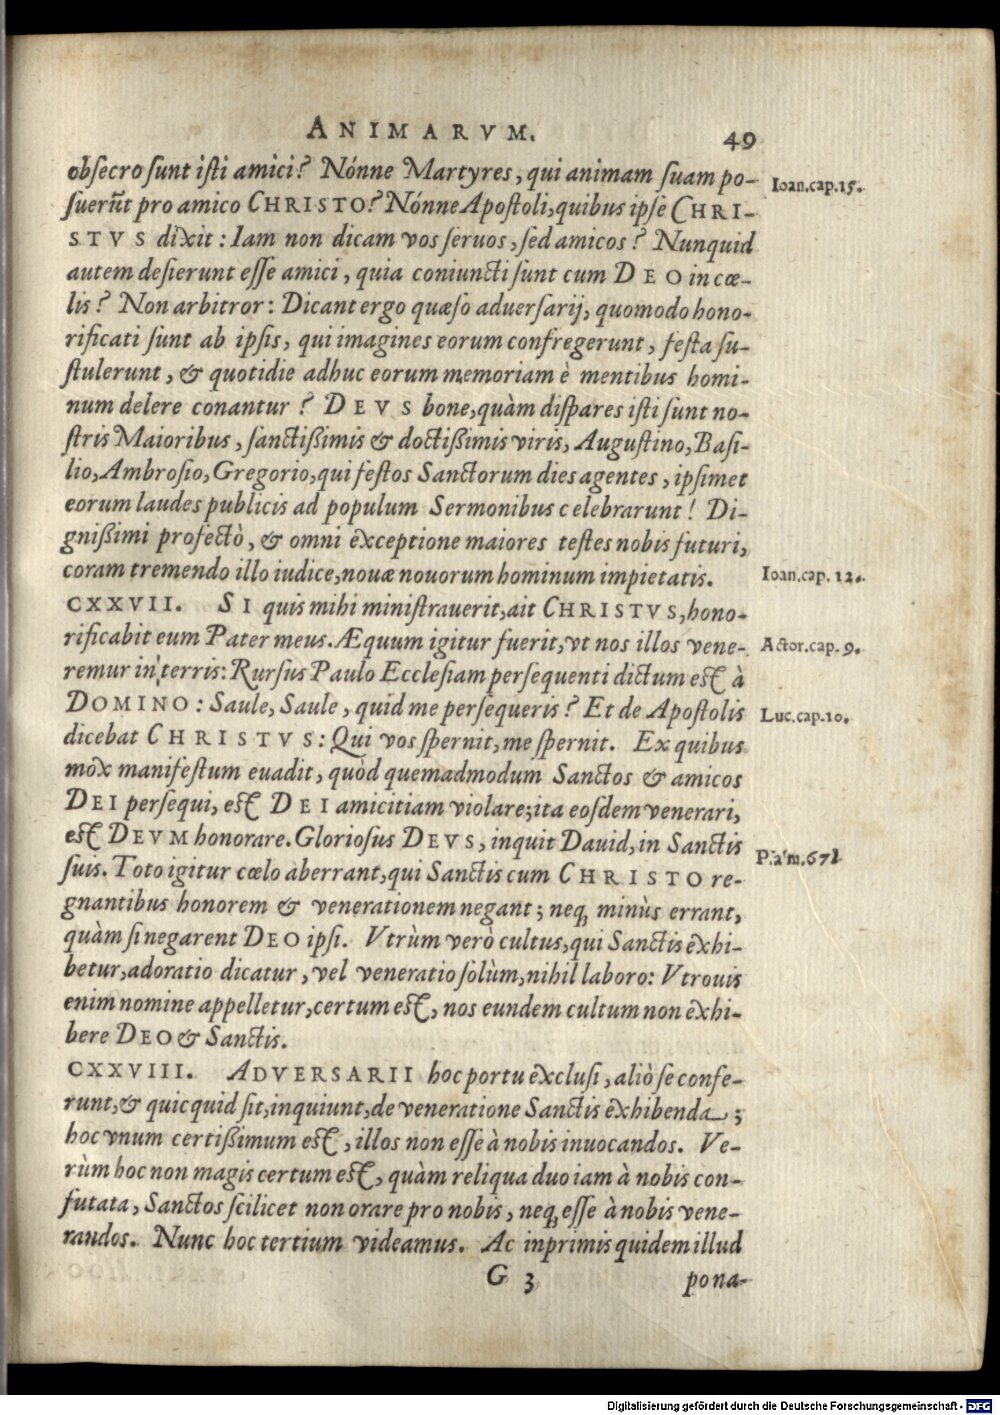 ANIMARVM. 49
obsecro sunt isti amici? Nónne Martyres, qui animam suam po-
suerūt pro amico CHRISTO? Nónne Apostoli, quibus ipse CHRI-
STVS dixit: Iam non dicam vos seruos, sed amicos? Nunquid
autem desierunt esse amici, quia coniuncti sunt cum DEO in cœ-
lis? Non arbitror: Dicant ergo quæso aduersarij, quomodo hono-
rificati sunt ab ipsis, qui imagines eorum confregerunt, festa su-
stulerunt, & quotidie adhuc eorum memoriam è mentibus homi-
num delere conantur? DEVS bone, quàm dispares isti sunt no-
stris Maioribus, sanctißimis & doctißimis viris, Augustino, Basi-
lio, Ambrosio, Gregorio, qui festos Sanctorum dies agentes, ipsimet
eorum laudes publicis ad populum Sermonibus celebrarunt! Di-
gnißimi profectò, & omni exceptione maiores testes nobis futuri,
coram tremendo illo iudice, nouæ nouorum hominum impietatis.
CXXVII. SI quis mihi ministrauerit, ait CHRISTVS, hono-
rificabit eum Pater meus. Æquum igitur fuerit, vt nos illos vene-
remur in terris: Rursus Paulo Ecclesiam persequenti dictum est à
DOMINO: Saule, Saule, quid me persequeris? Et de Apostolis
dicebat CHRISTVS: Qui vos spernit, me spernit. Ex quibus
mox manifestum euadit, quòd quemadmodum Sanctos & amicos
DEI persequi, est DEI amicitiam violare; ita eosdem venerari,
est DEVM honorare. Gloriosus DEVS, inquit Dauid, in Sanctis
suis. Toto igitur cœlo aberrant, qui Sanctis cum CHRISTO re-
gnantibus honorem & venerationem negant; neq; minùs errant,
quàm si negarent DEO ipsi. Vtrùm verò cultus, qui Sanctis exhi-
betur, adoratio dicatur, vel veneratio solùm, nihil laboro: Vtrouis
enim nomine appelletur, certum est, nos eundem cultum non exhi-
bere DEO & Sanctis.
CXXVIII. ADVERSARII hoc portu exclusi, aliò se confe-
runt, & quicquid sit, inquiunt, de veneratione Sanctis exhibenda;
hoc vnum certißimum est, illos non esse à nobis inuocandos. Ve-
rùm hoc non magis certum est, quàm reliqua duo iam à nobis con-
futata, Sanctos scilicet non orare pro nobis, neq; esse à nobis vene-
randos. Nunc hoc tertium videamus. Ac inprimis quidem illud
G 3 pona-
Ioan.cap.15.
Ioan.cap.12.
Actor.cap.9.
Luc.cap.10.
Psalm.67.
Digitalisierung gefördert durch die Deutsche Forschungsgemeinschaft - DFG